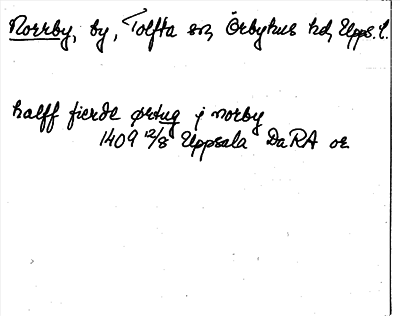 Norrby, by, Tolfta sn, Örbyhus hd, Upps. l.
halff fierde ørtug j norby
1409 12/8 Uppsala DaRA or